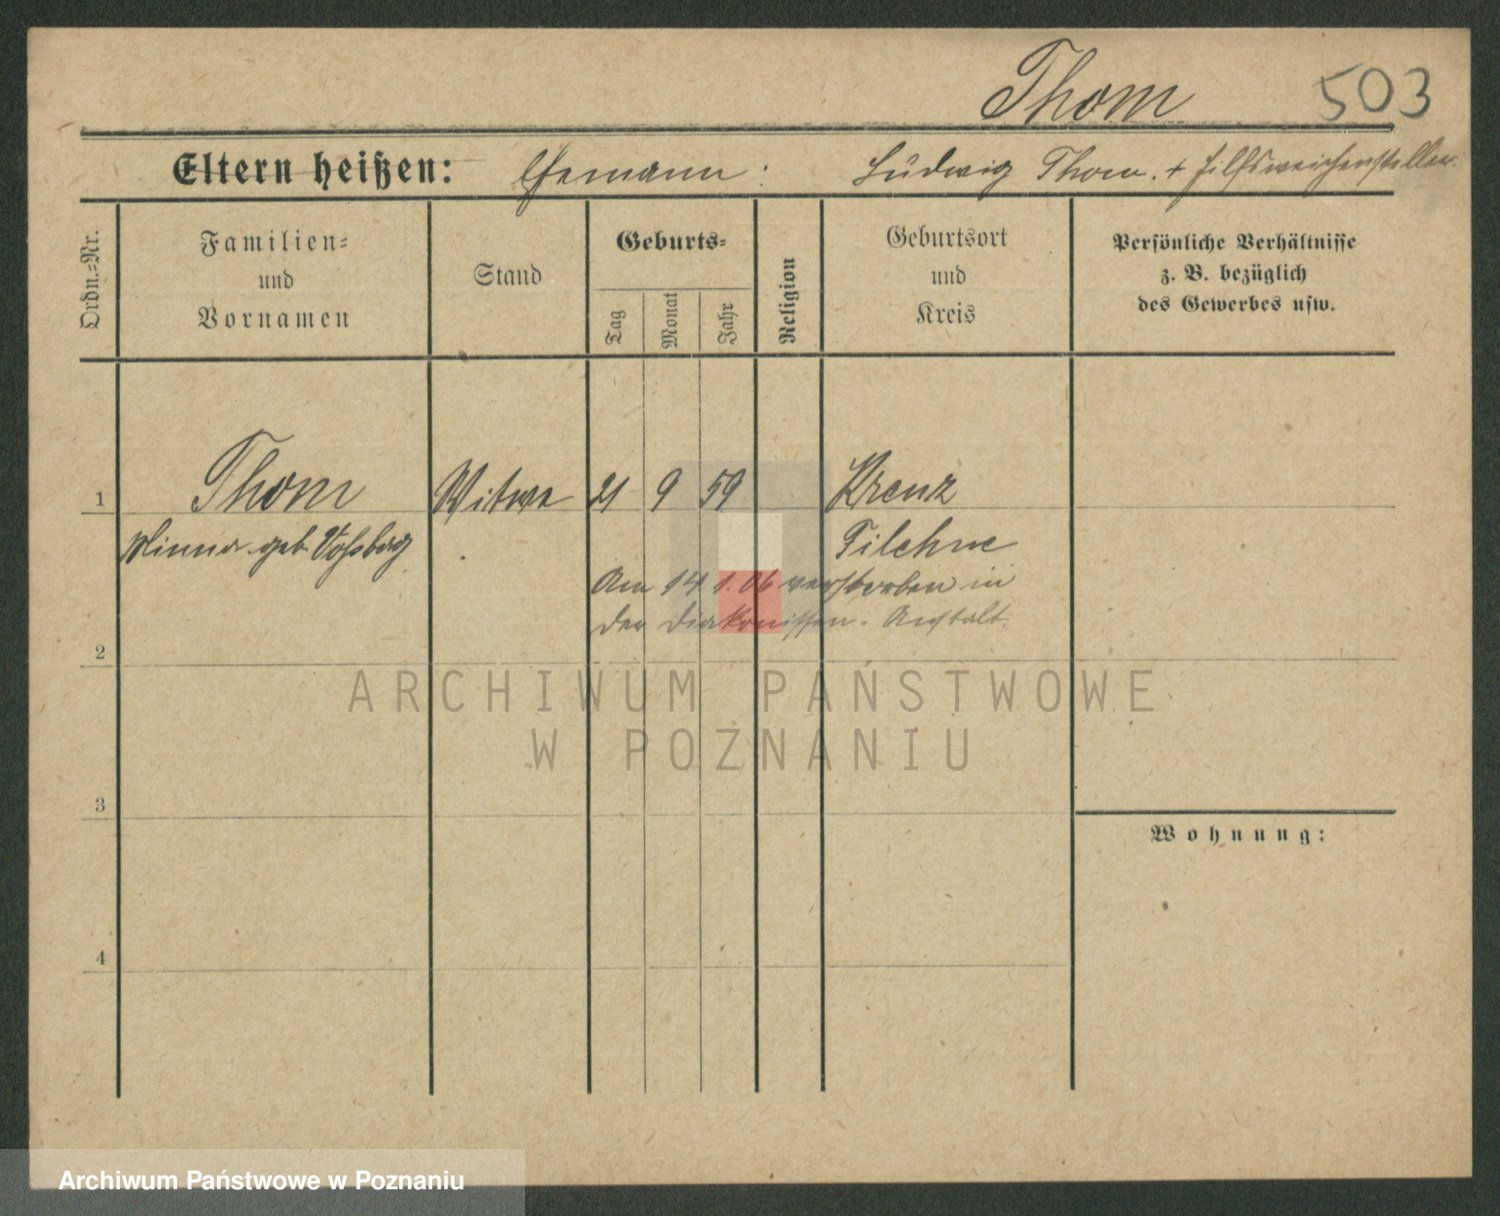 Thom 503
Eltern heißen: Ehemann: Ludwig Thom. + Hilfsweichensteller.
Ordn.=Nr.
Familien=
und
Vornamen
Stand
Geburts=
Tag
Monat
Jahr
Religion
Geburtsort
und
Kreis
Persönliche Verhältnisse
z. B. bezüglich
des Gewerbes usw.
1 Thom Witwe 21 9 59 Kreuz
Minna geb. Filehne
Am 14 1. 06 verstorben in
der Diakonissen-Anstalt.
2
ARCHIWUM PAŃSTWOWE
W POZNANIU
3
Wohnung:
4
Archiwum Państwowe w Poznaniu